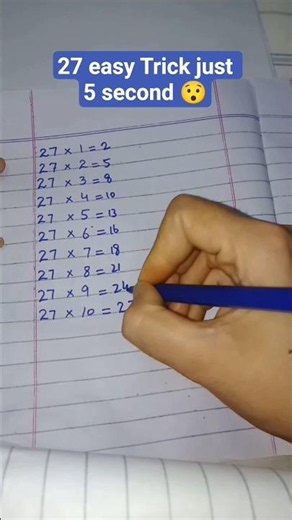 27 easy Trick just
5 second 😯
27 × 1 = 2
27 × 2 = 5
27 × 3 = 8
27 × 4 = 10
27 × 5 = 13
27 × 6 = 16
27 × 7 = 18
27 × 8 = 21
27 × 9 = 24
27 × 10 = 27